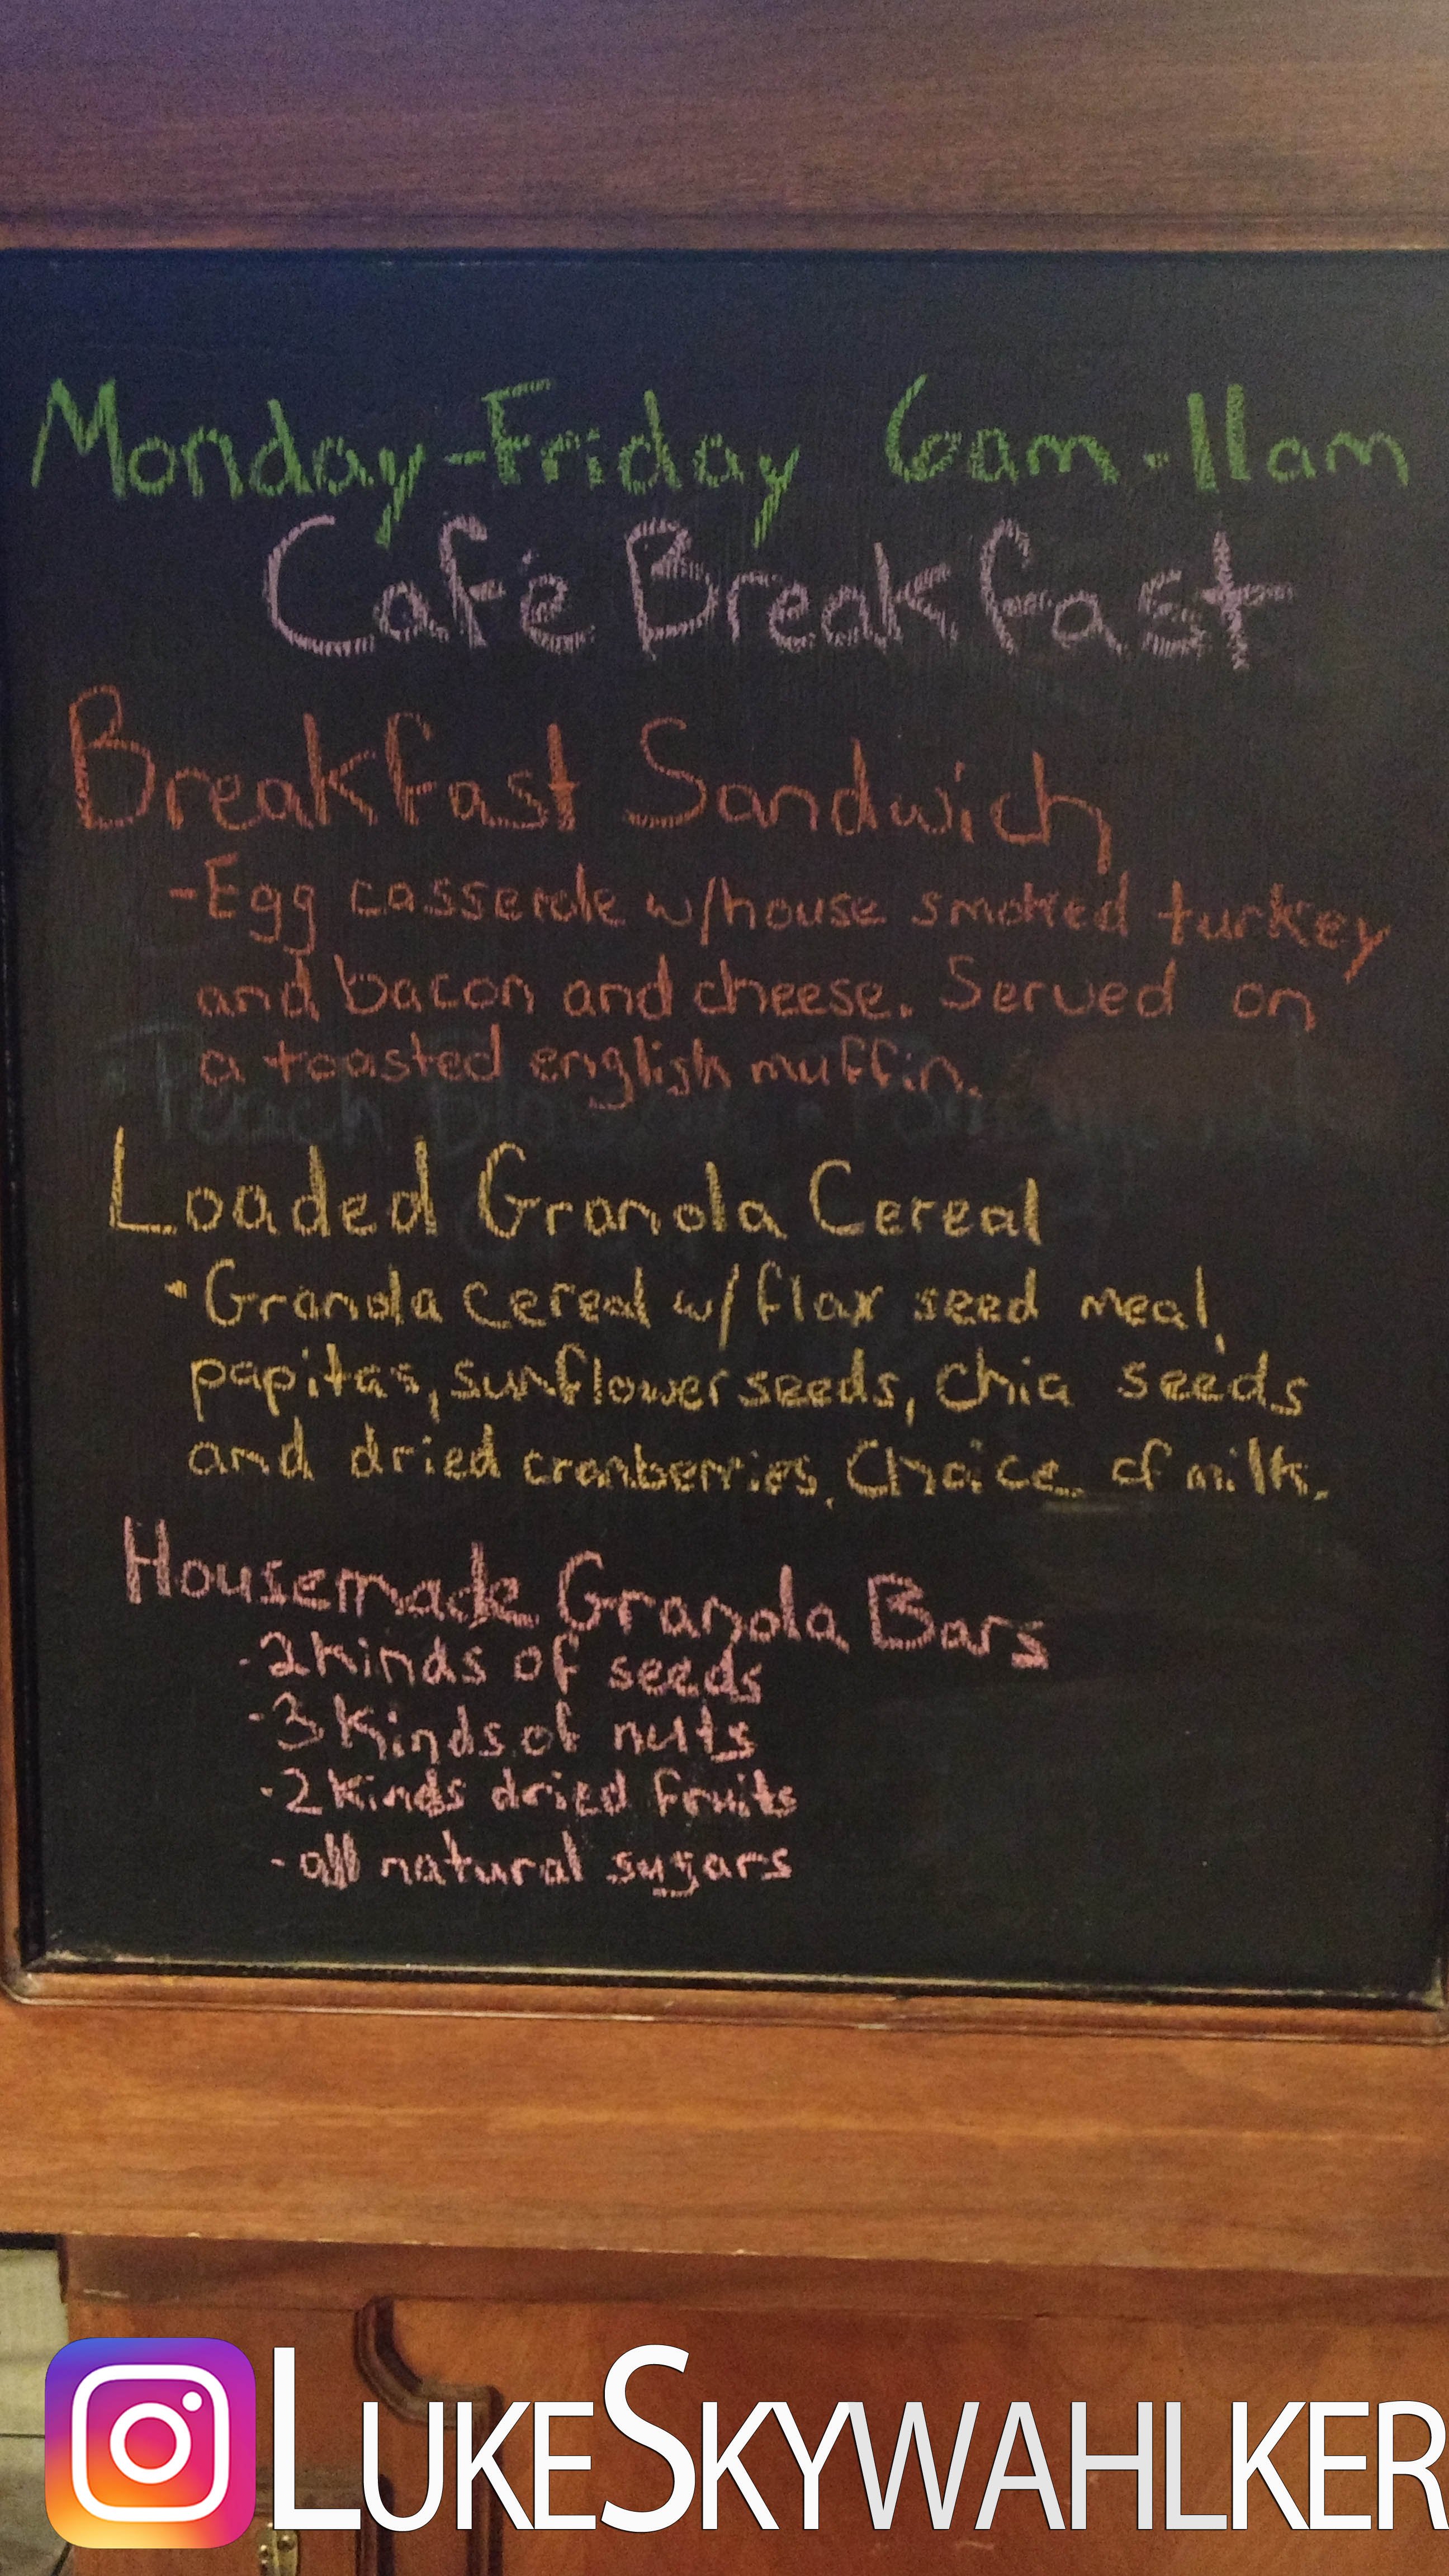 Monday-Friday 6am-11am
Café Breakfast
Breakfast Sandwich
-Egg casserole w/house smoked turkey
and bacon and cheese. Served on
a toasted english muffin.
Loaded Granola Cereal
-Granola cereal w/ flax seed meal,
papitas, sunflower seeds, chia seeds
and dried cranberries. Choice of milk.
Housemade Granola Bars
-2 kinds of seeds
-3 kinds of nuts
-2 kinds dried fruits
-all natural sugars
LUKESKYWAHLKER